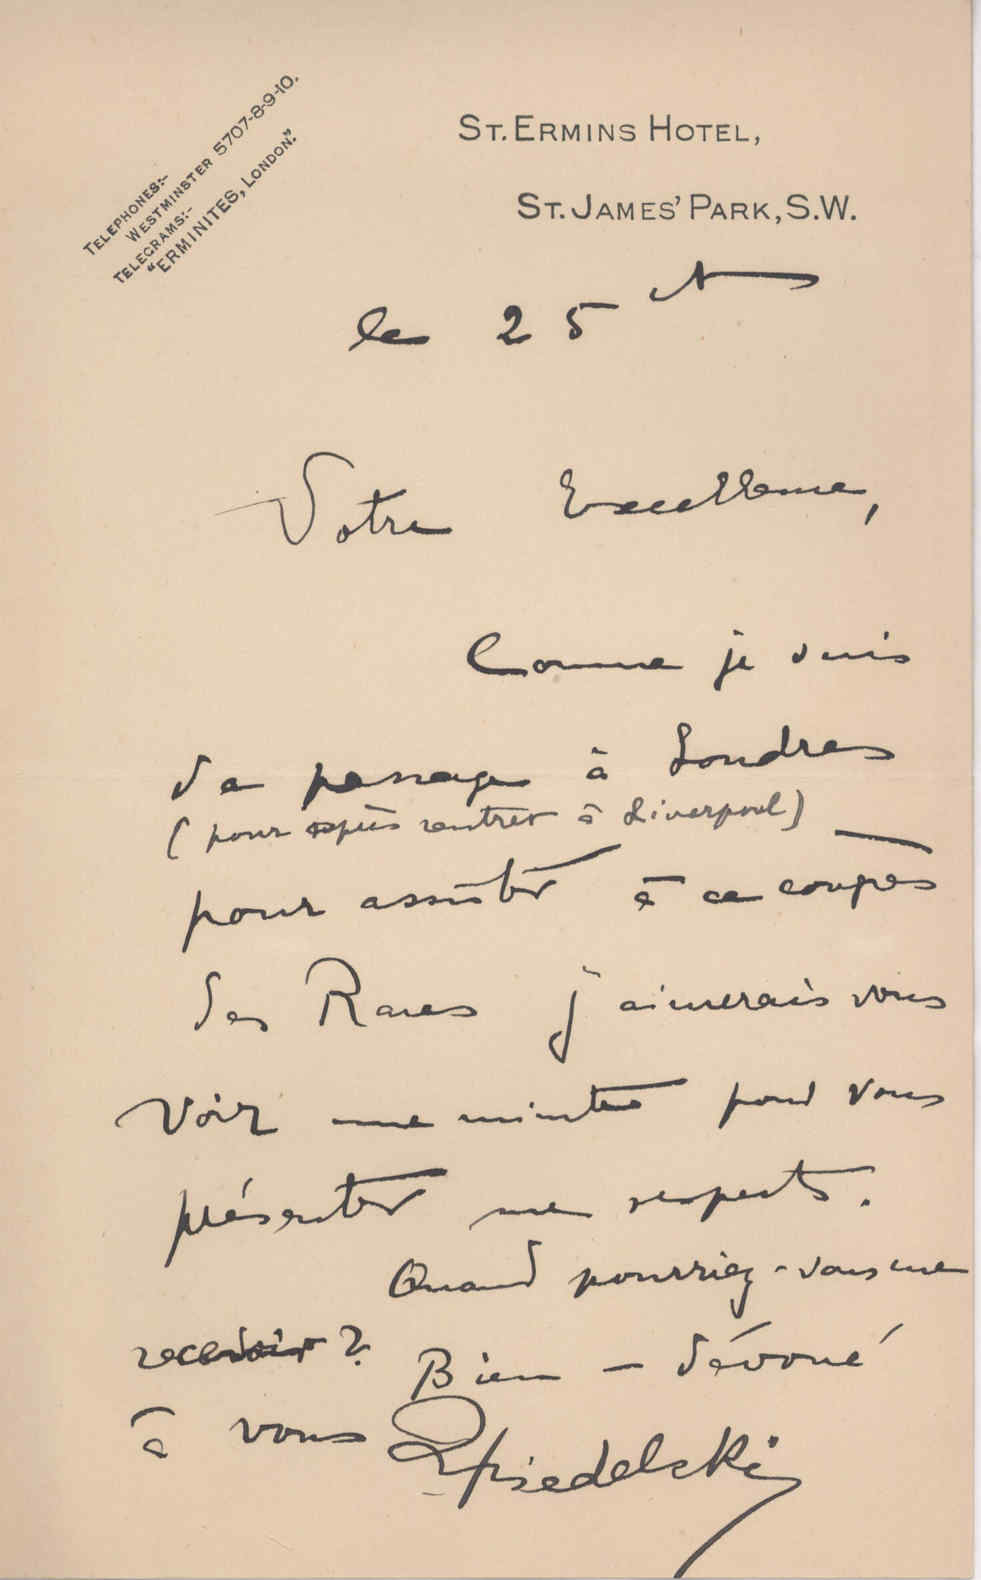 TELEPHONES:-
WESTMINSTER 5707-8-9-10.
TELEGRAMS:-
"ERMINITES, LONDON."
ST. ERMINS HOTEL,
ST. JAMES' PARK, S.W.
le 25
Votre Excellence,
Comme je suis
de passage à Londres
(pour après rentrer à Liverpool)
pour assister à ce congrès
des Races j'aimerais vous
voir une minute pour vous
présenter mes respects.
Quand pourriez-vous me
recevoir?
Bien-dévoué
à vous